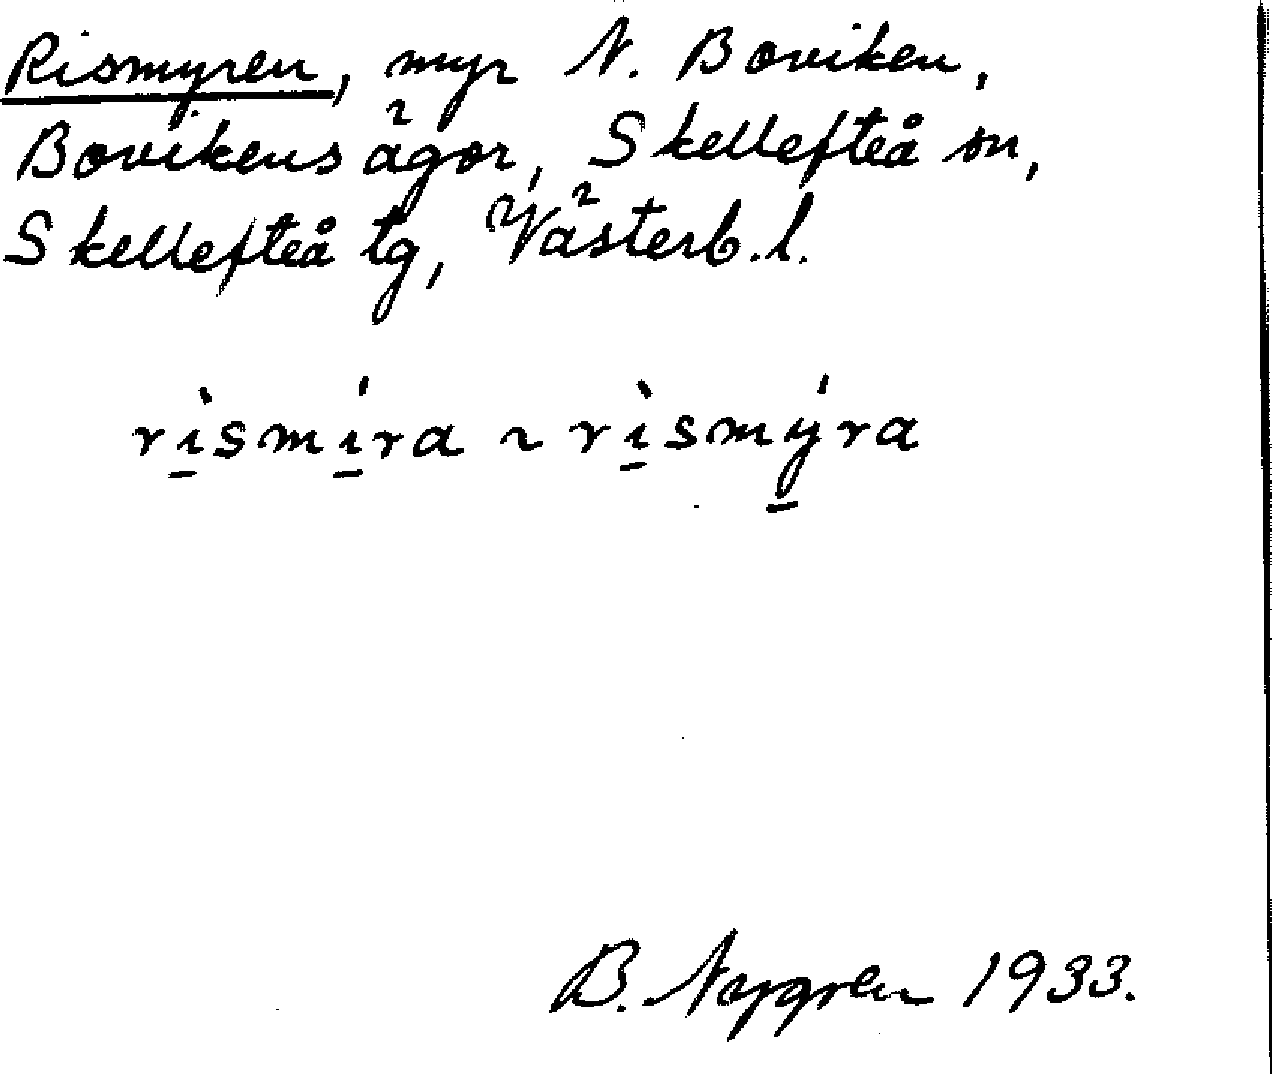 Rismyren, myr N. Boviken,
Bovikens ägor, Skellefteå sn,
Skellefteå tg, Västerb. l.
rı̱̀smı̱́ra ~ rı̱̀smý̱ra
B. Nygren 1933.